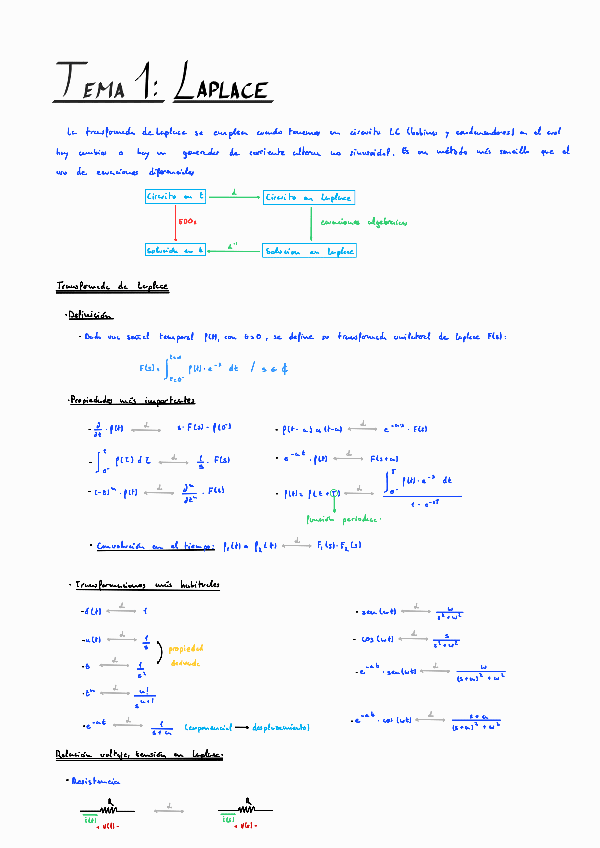 TEMA 1: LAPLACE
La transformada de Laplace se emplea cuando tenemos un circuito LC (bobinas y condensadores) en el cual
hay cambios o hay un generador de corriente alterna no sinusoidal. Es un método más sencillo que el
uso de ecuaciones diferenciales
Circuito en t L Circuito en Laplace
EDOs ecuaciones algebraicas
Solución en t L⁻¹ Solución en Laplace
Transformada de Laplace
· Definición
- Dada una señal temporal f(t), con t>0, se define su transformada unilateral de Laplace F(s):
F(s) = ∫_{t=0⁻}^{t=∞} f(t) · e^{-s} dt / s ∈ ℂ
· Propiedades más importantes
- d/dt · f(t) L s · F(s) - f(0⁻)
- f(t-a) u(t-a) L e^{-as} · F(s)
- ∫_{0⁻}^{t} f(τ) dτ L 1/s · F(s)
- e^{-at} · f(t) L F(s+a)
- (-t)ⁿ · f(t) L dⁿ/dtⁿ · F(s)
- f(t) = f(t+T) L ∫_{0⁻}^{T} f(t) · e^{-s} dt / 1 - e^{-sT}
función periódica
· Convolución en el tiempo: f₁(t) * f₂(t) L F₁(s) · F₂(s)
· Transformaciones más habituales
- δ(t) L 1
- sen(wt) L w / s² + w²
- u(t) L 1/s
- cos(wt) L s / s² + w²
propiedad
derivada
- t L 1/s²
- e^{-at} · sen(wt) L w / (s+a)² + w²
- tⁿ L n! / s^{n+1}
- e^{-at} L 1 / s+a (exponencial → desplazamiento)
- e^{-at} · cos(wt) L s+a / (s+a)² + w²
Relación voltaje, tensión en Laplace.
· Resistencia
R L R
i(t) i(s)
+ v(t) - + v(s) -